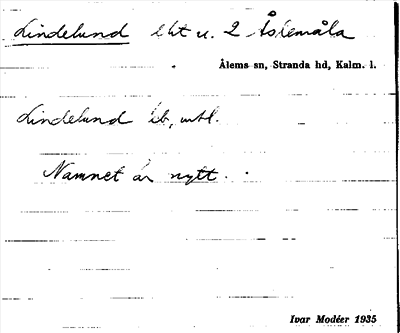 Lindelund lht u. 2 Åstemåla
Ålems sn, Stranda hd, Kalm. l.
Lindelund ib, utt.
Namnet är nytt.
Ivar Modéer 1935